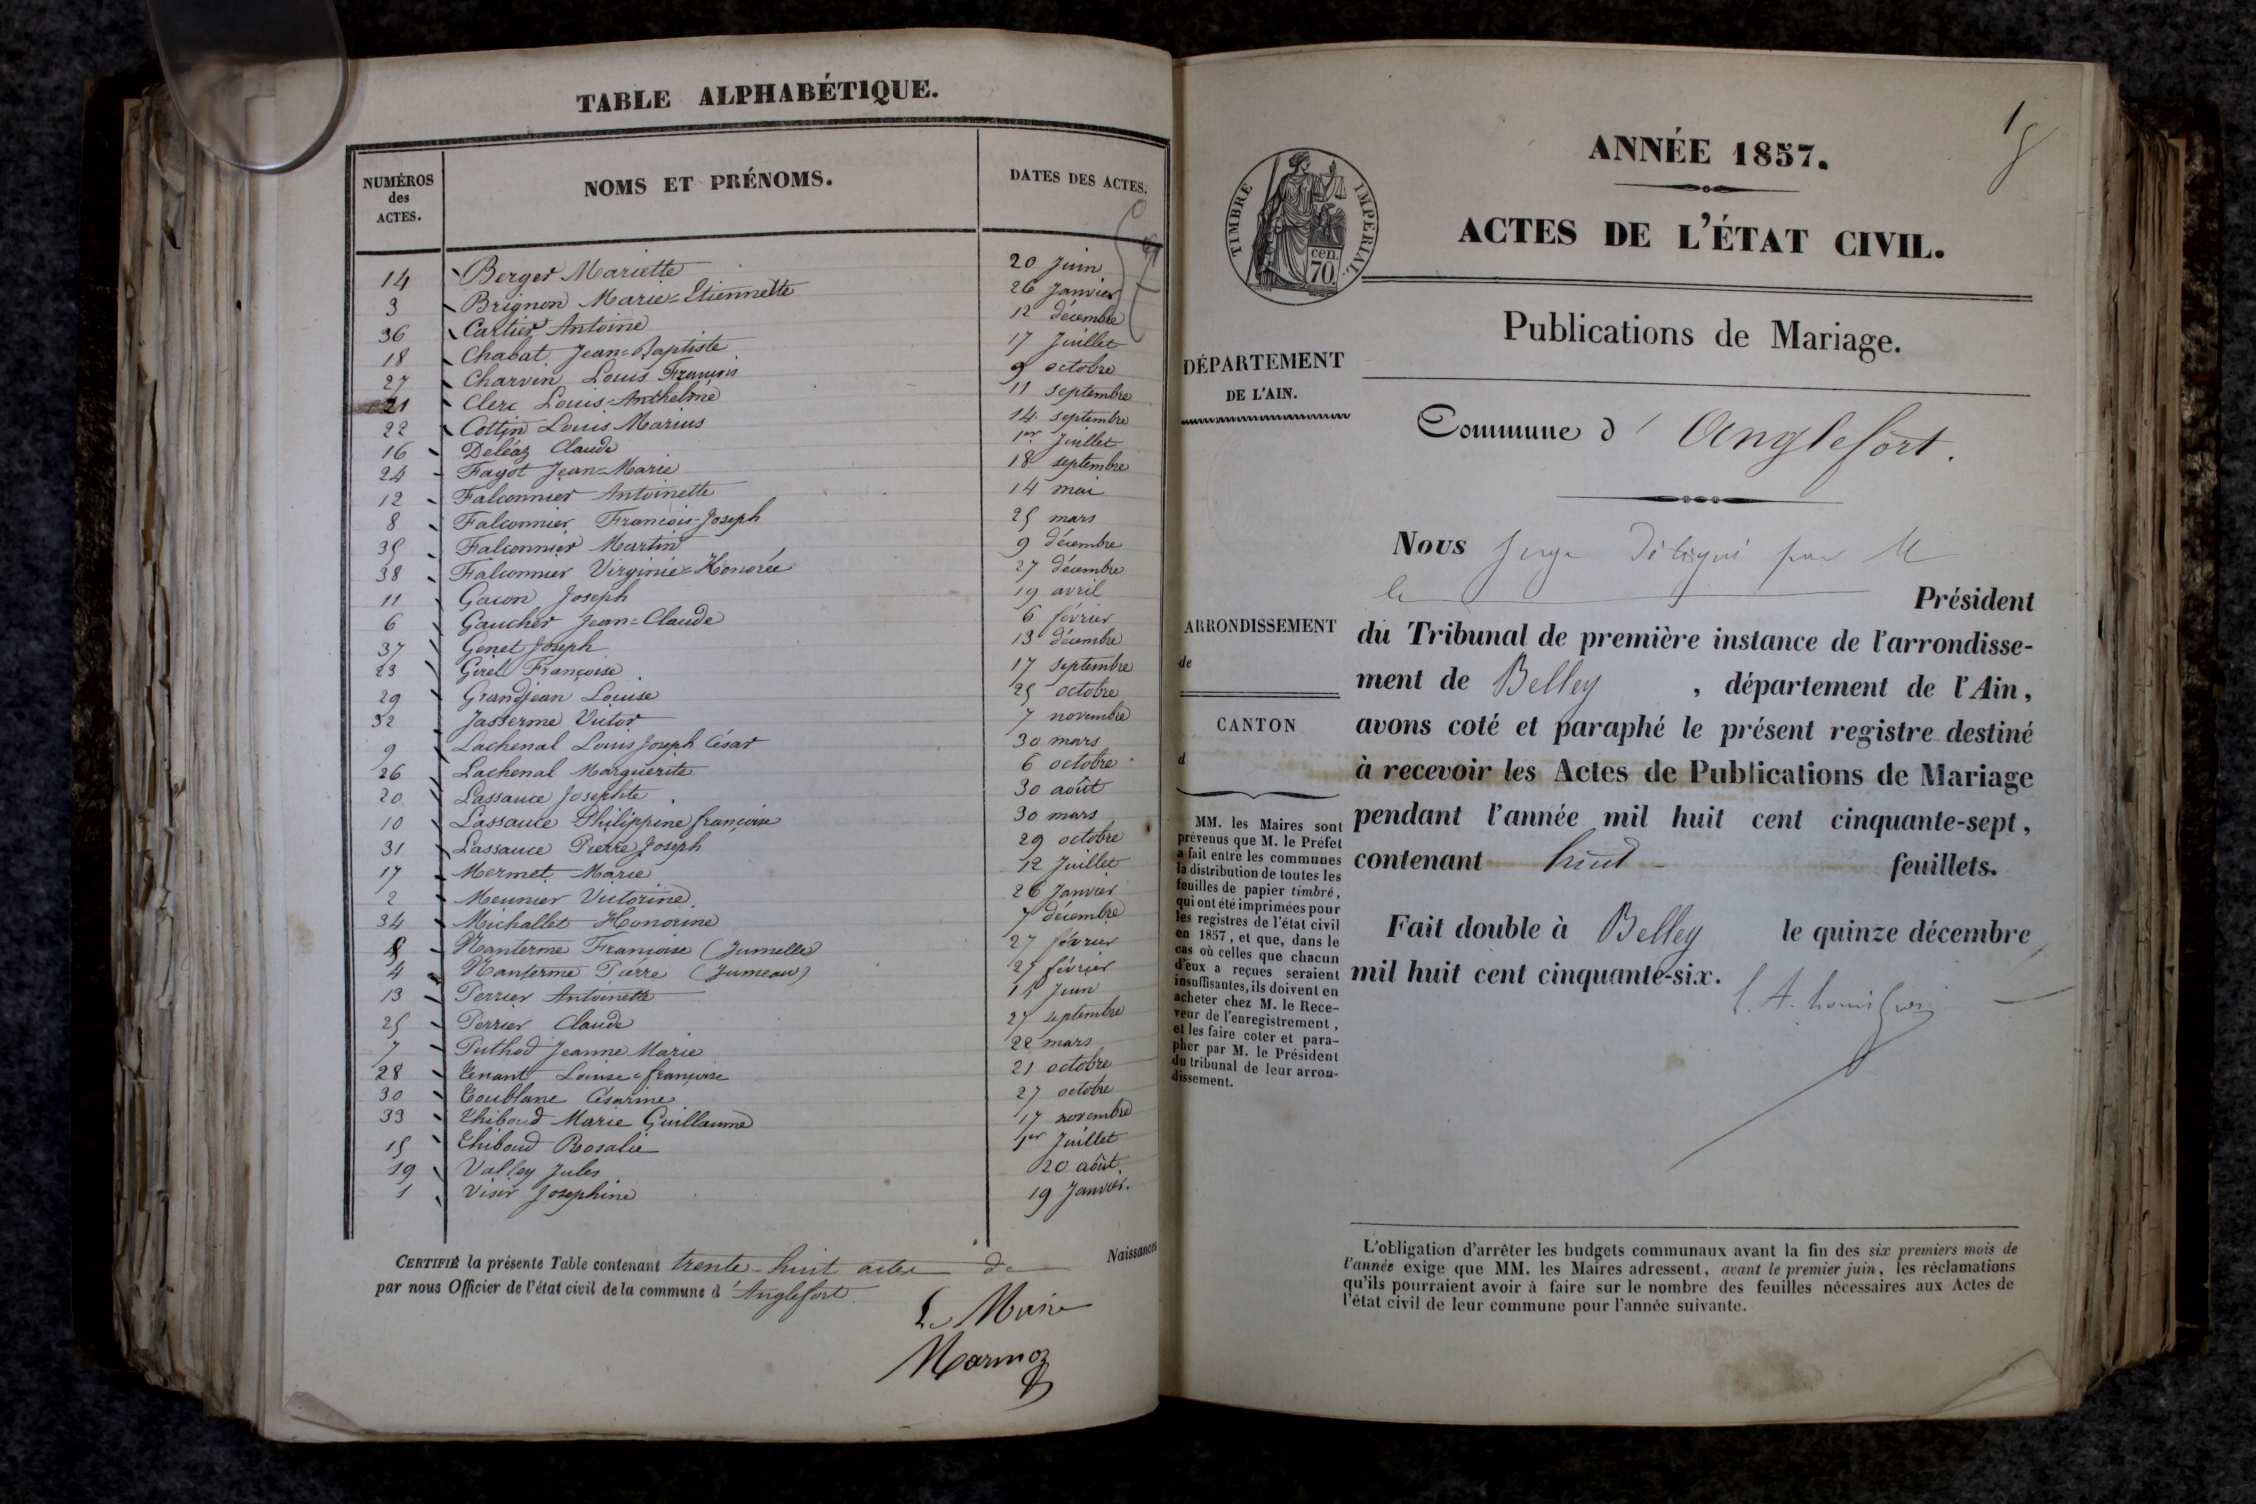 TABLE ALPHABÉTIQUE.
NUMÉROS des ACTES. NOMS ET PRÉNOMS. DATES DES ACTES.
14 Berger Mariette 20 Juin
3 Brignon Marie=Etiennette 26 Janvier
36 Cartier Antoine 12 décembre
18 Chabat Jean=Baptiste 17 Juillet
27 Charvin Louis François 9 octobre
21 Clerc Louis=Anthelme 11 septembre
22 Cottin Louis Marius 14 septembre
16 Deléaz Claude 1er Juillet
24 Fagot Jean=Marie 18 septembre
12 Falconnier Antoinette 14 mai
8 Falconnier François-Joseph 25 mars
35 Falconnier Martin 9 décembre
38 Falconnier Virginie=Honorée 27 décembre
11 Gacon Joseph 19 avril
6 Gaucher Jean=Claude 6 février
37 Genet Joseph 13 décembre
23 Girel Françoise 17 septembre
29 Grandjean Louise 25 octobre
32 Jasserme Victor 7 novembre
9 Lachenal Louis Joseph César 30 mars
26 Lachenal Marguerite 6 octobre
20 Lassauce Josephte 30 août
10 Lassauce Philippine françoise 30 mars
31 Lassauce Pierre Joseph 29 octobre
17 Mermet Marie 12 Juillet
2 Meunier Victorine 26 Janvier
34 Michallet Honorine 7 décembre
5 Nanterme Françoise (Jumelle) 27 février
4 Nanterme Pierre (Jumeau) 27 février
13 Perrier Antoinette Juin
25 Perrier Claude 27 septembre
7 Puthod Jeanne Marie 22 mars
28 Tenant Louise=françoise 21 octobre
30 Toublanc Césarine 27 octobre
33 Thiboud Marie Guillaume 17 novembre
15 Thiboud Rosalie 1er Juillet
19 Valley Jules 20 août.
1 Visir Josephine 19 Janvier.
CERTIFIÉ la présente Table contenant trente-huit actes de Naissances
par nous Officier de l'état civil de la commune d'Anglefort
Le Maire
Marmoz
1
ANNÉE 1857.
TIMBRE IMPÉRIAL.
cen.
70.
ACTES DE L'ÉTAT CIVIL.
Publications de Mariage.
DÉPARTEMENT
DE L'AIN.
Commune d' Anglefort.
Nous Juge Délégué par M
le Président
ARRONDISSEMENT
de
CANTON
d
du Tribunal de première instance de l'arrondisse-
ment de Belley , département de l'Ain,
avons coté et paraphé le présent registre destiné
à recevoir les Actes de Publications de Mariage
pendant l'année mil huit cent cinquante-sept,
contenant huit feuillets.
Fait double à Belley le quinze décembre
mil huit cent cinquante-six.
MM. les Maires sont
prévenus que M. le Préfet
a fait entre les communes
la distribution de toutes les
feuilles de papier timbré,
qui ont été imprimées pour
les registres de l'état civil
en 1857, et que, dans le
cas où celles que chacun
d'eux a reçues seraient
insuffisantes, ils doivent en
acheter chez M. le Rece-
veur de l'enregistrement,
et les faire coter et para-
pher par M. le Président
du tribunal de leur arron-
dissement.
L'obligation d'arrêter les budgets communaux avant la fin des six premiers mois de
l'année exige que MM. les Maires adressent, avant le premier juin, les réclamations
qu'ils pourraient avoir à faire sur le nombre des feuilles nécessaires aux Actes de
l'état civil de leur commune pour l'année suivante.